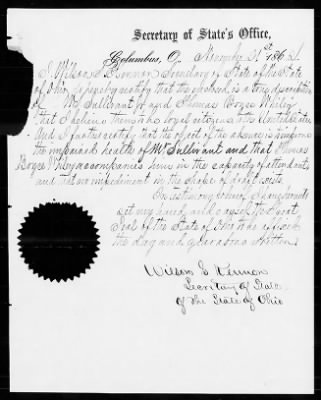 Secretary of State's Office,
Columbus, O. November 21st 1862.
I Wilson S Kennon Secretary of State of the State
of Ohio hereby certify that the enclosed is a true description
of Wm Sullivant Jr and Thomas Boyce
that I believe them to be loyal citizens of the United States
And I further certify that the object of the absence is to improve
the impaired health of Mr Sullivant and that Thomas
Boyce accompanies him in the capacity of attendant
and that no impediment in the shape of draft exists.
In testimony whereof I have hereunto
set my hand and caused the Great
Seal of the State of Ohio to be affixed
the day and year above written.
Wilson S Kennon
Secretary of State
of the State of Ohio